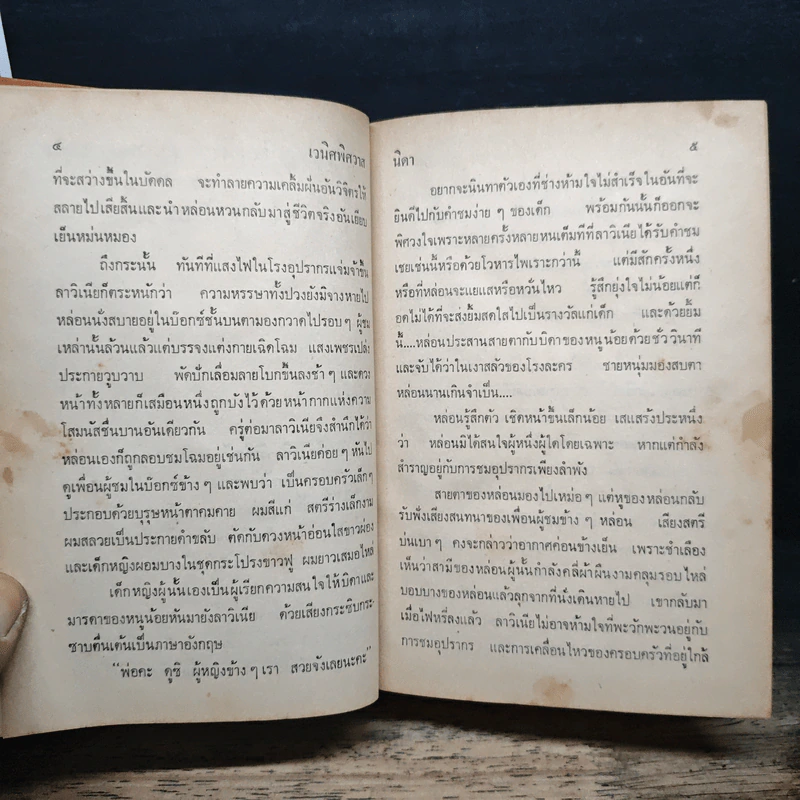 ๔ เวนิศพิศวาส
ที่จะสว่างขึ้นในบัดดล จะทำลายความเคลิ้มฝันอันวิจิตรให้
สลายไปเสียสิ้นและนำหล่อนหวนกลับมาสู่ชีวิตจริงอันเยียบ
เย็นหม่นหมอง
ถึงกระนั้น ทันทีที่แสงไฟในโรงอุปรากรแจ่มจ้าขึ้น
ลาวิเนียก็ตระหนักว่า ความหรรษาทั้งปวงยังมิจางหายไป
หล่อนนั่งสบายอยู่ในบ๊อกซ์ชั้นบนตามองกวาดไปรอบๆ ผู้ชม
เหล่านั้นล้วนแล้วแต่บรรจงแต่งกายเฉิดโฉม แสงเพชรเปล่ง
ประกายวูบวาบ พัดปักเลื่อมลายโบกขึ้นลงช้าๆ และดวง
หน้าทั้งหลายก็เสมือนหนึ่งถูกบังไว้ด้วยหน้ากากแห่งความ
โสมนัสชื่นบานอันเดียวกัน ครู่ต่อมาลาวิเนียจึงสำนึกได้ว่า
หล่อนเองก็ถูกลอบชมโฉมอยู่เช่นกัน ลาวิเนียค่อยๆ หันไป
ดูเพื่อนผู้ชมในบ๊อกซ์ข้างๆ และพบว่า เป็นครอบครัวเล็กๆ
ประกอบด้วยบุรุษหน้าตาคมคาย ผมสีแก่ สตรีร่างเล็กงาม
ผมสลวยเป็นประกายดำขลับ ตัดกับดวงหน้าอ่อนใสขาวผ่อง
และเด็กหญิงผอมบางในชุดกระโปรงขาวฟู ผมยาวเสมอไหล่
เด็กหญิงผู้นั้นเองเป็นผู้เรียกความสนใจให้บิดาและ
มารดาของหนูน้อยหันมายังลาวิเนีย ด้วยเสียงกระซิบกระ-
ซาบตื่นเต้นเป็นภาษาอังกฤษ
“พ่อคะ ดูซิ ผู้หญิงข้างๆ เรา สวยจังเลยนะคะ”
นิดา ๕
อยากจะนินทาตัวเองที่ช่างห้ามใจไม่สำเร็จในอันที่จะ
ยินดีไปกับคำชมง่ายๆ ของเด็ก พร้อมกันนั้นก็ออกจะ
พิศวงใจเพราะหลายครั้งหลายหนเต็มทีที่ลาวิเนียได้รับคำชม
เชยเช่นนี้หรือด้วยโวหารไพเราะกว่านี้ แต่มีสักครั้งหนึ่ง
หรือที่หล่อนจะแยแสหรือหวั่นไหว รู้สึกยุ่งใจไม่น้อยแต่ก็
อดไม่ได้ที่จะส่งยิ้มสดใสไปเป็นรางวัลแก่เด็ก และด้วยยิ้ม
นี้....หล่อนประสานสายตากับบิดาของหนูน้อยด้วยชั่ววินาที
และจับได้ว่าในเงาสลัวของโรงละคร ชายหนุ่มมองสบตา
หล่อนนานเกินจำเป็น....
หล่อนรู้สึกตัว เชิดหน้าขึ้นเล็กน้อย เสแสร้งประหนึ่ง
ว่า หล่อนมิได้สนใจผู้หนึ่งผู้ใดโดยเฉพาะ หากแต่กำลัง
สำราญอยู่กับการชมอุปรากรเพียงลำพัง
สายตาของหล่อนมองไปเหม่อๆ แต่หูของหล่อนกลับ
รับฟังเสียงสนทนาของเพื่อนผู้ชมข้างๆ หล่อน เสียงสตรี
บ่นเบาๆ คงจะกล่าวว่าอากาศค่อนข้างเย็น เพราะชำเลือง
เห็นว่าสามีของหล่อนผู้นั้นกำลังคลี่ผ้าผืนงามคลุมรอบไหล่
บอบบางของหล่อนแล้วลุกจากที่นั่งเดินหายไป เขากลับมา
เมื่อไฟหรี่ลงแล้ว ลาวิเนียไม่อาจห้ามใจที่พะวักพะวนอยู่กับ
การชมอุปรากร และการเคลื่อนไหวของครอบครัวที่อยู่ใกล้